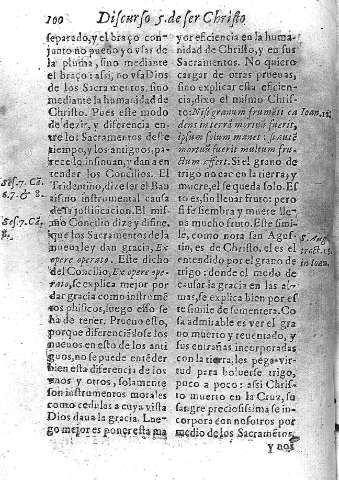 100 Discurso 5. de ser Christo
separado, y el braço con-
junto no pueño yo vsar de
la pluma, sino mediante
el braço: assi, no vsa Dios
de los Sacramẽtos, sino
mediante la humanidad de
Christo. Pues este modo
de dezir, y diferencia en-
tre los Sacramentos deste
tiempo, y los antiguos, pa-
rece lo insinuan, y dan a en
tender los Concilios. El
Tridentino, dize ser el Bau
tismo instrumental causa
de la justificacion. El mis-
mo Concilio dize y difine,
que los Sacramentos de la
nueua ley dan gracia, Ex
opere operato. Este dicho
del Concilio, Ex opere ope-
rato, se explica mejor por
dar gracia como instrumẽ
tos phisicos, luego esso se
ha de tener. Prueuo esto,
porque diferenciãdose los
nueuos en esto de los anti
guos, no se puede entẽder
bien esta diferencia de los
vnos y otros, solamente
son instrumentos morales
como cedulas a cuya vista
Dios daua la gracia. Lue-
go mejor es poner esta ma
Ses. 7. Cã.
6. 7. & 8.
Ses. 7. Cã.
8.
yor eficiencia en la huma-
nidad de Christo, y en sus
Sacramentos. No quiero
cargar de otras prueuas,
sino explicar esta eficien-
cia, dixo el mismo Chris-
to: Nisi granum frumẽti ca
dens in terrã mortuũ fuerit,
ipsum solum manet: si autẽ
mortuũ fuerit multum fru-
ctum affert. Si el grano de
trigo no cae en la tierra, y
muere, el se queda solo. Es
to es, sin lleuar fruto: pero
si se siembra y muere lle-
ua mucho fruto. Este simi-
le, como nota san Agus-
tin, es de Christo, el es el
entendido por el grano de
trigo: donde el modo de
causar la gracia en las al-
mas, se explica bien por es
te simile de sementera. Co
sa admirable es ver el gra
no muerto y reuentado, y
sus entrañas incorporadas
con la tierra, les pega vir-
tud para boluerse trigo,
poco a poco: assi Chris-
to muerto en la Cruz, su
sangre preciosissima se in-
corpora con nosotros por
medio de los Sacramẽtos,
Ioan. 12.
S. Aug.
in Ioan.
y nos